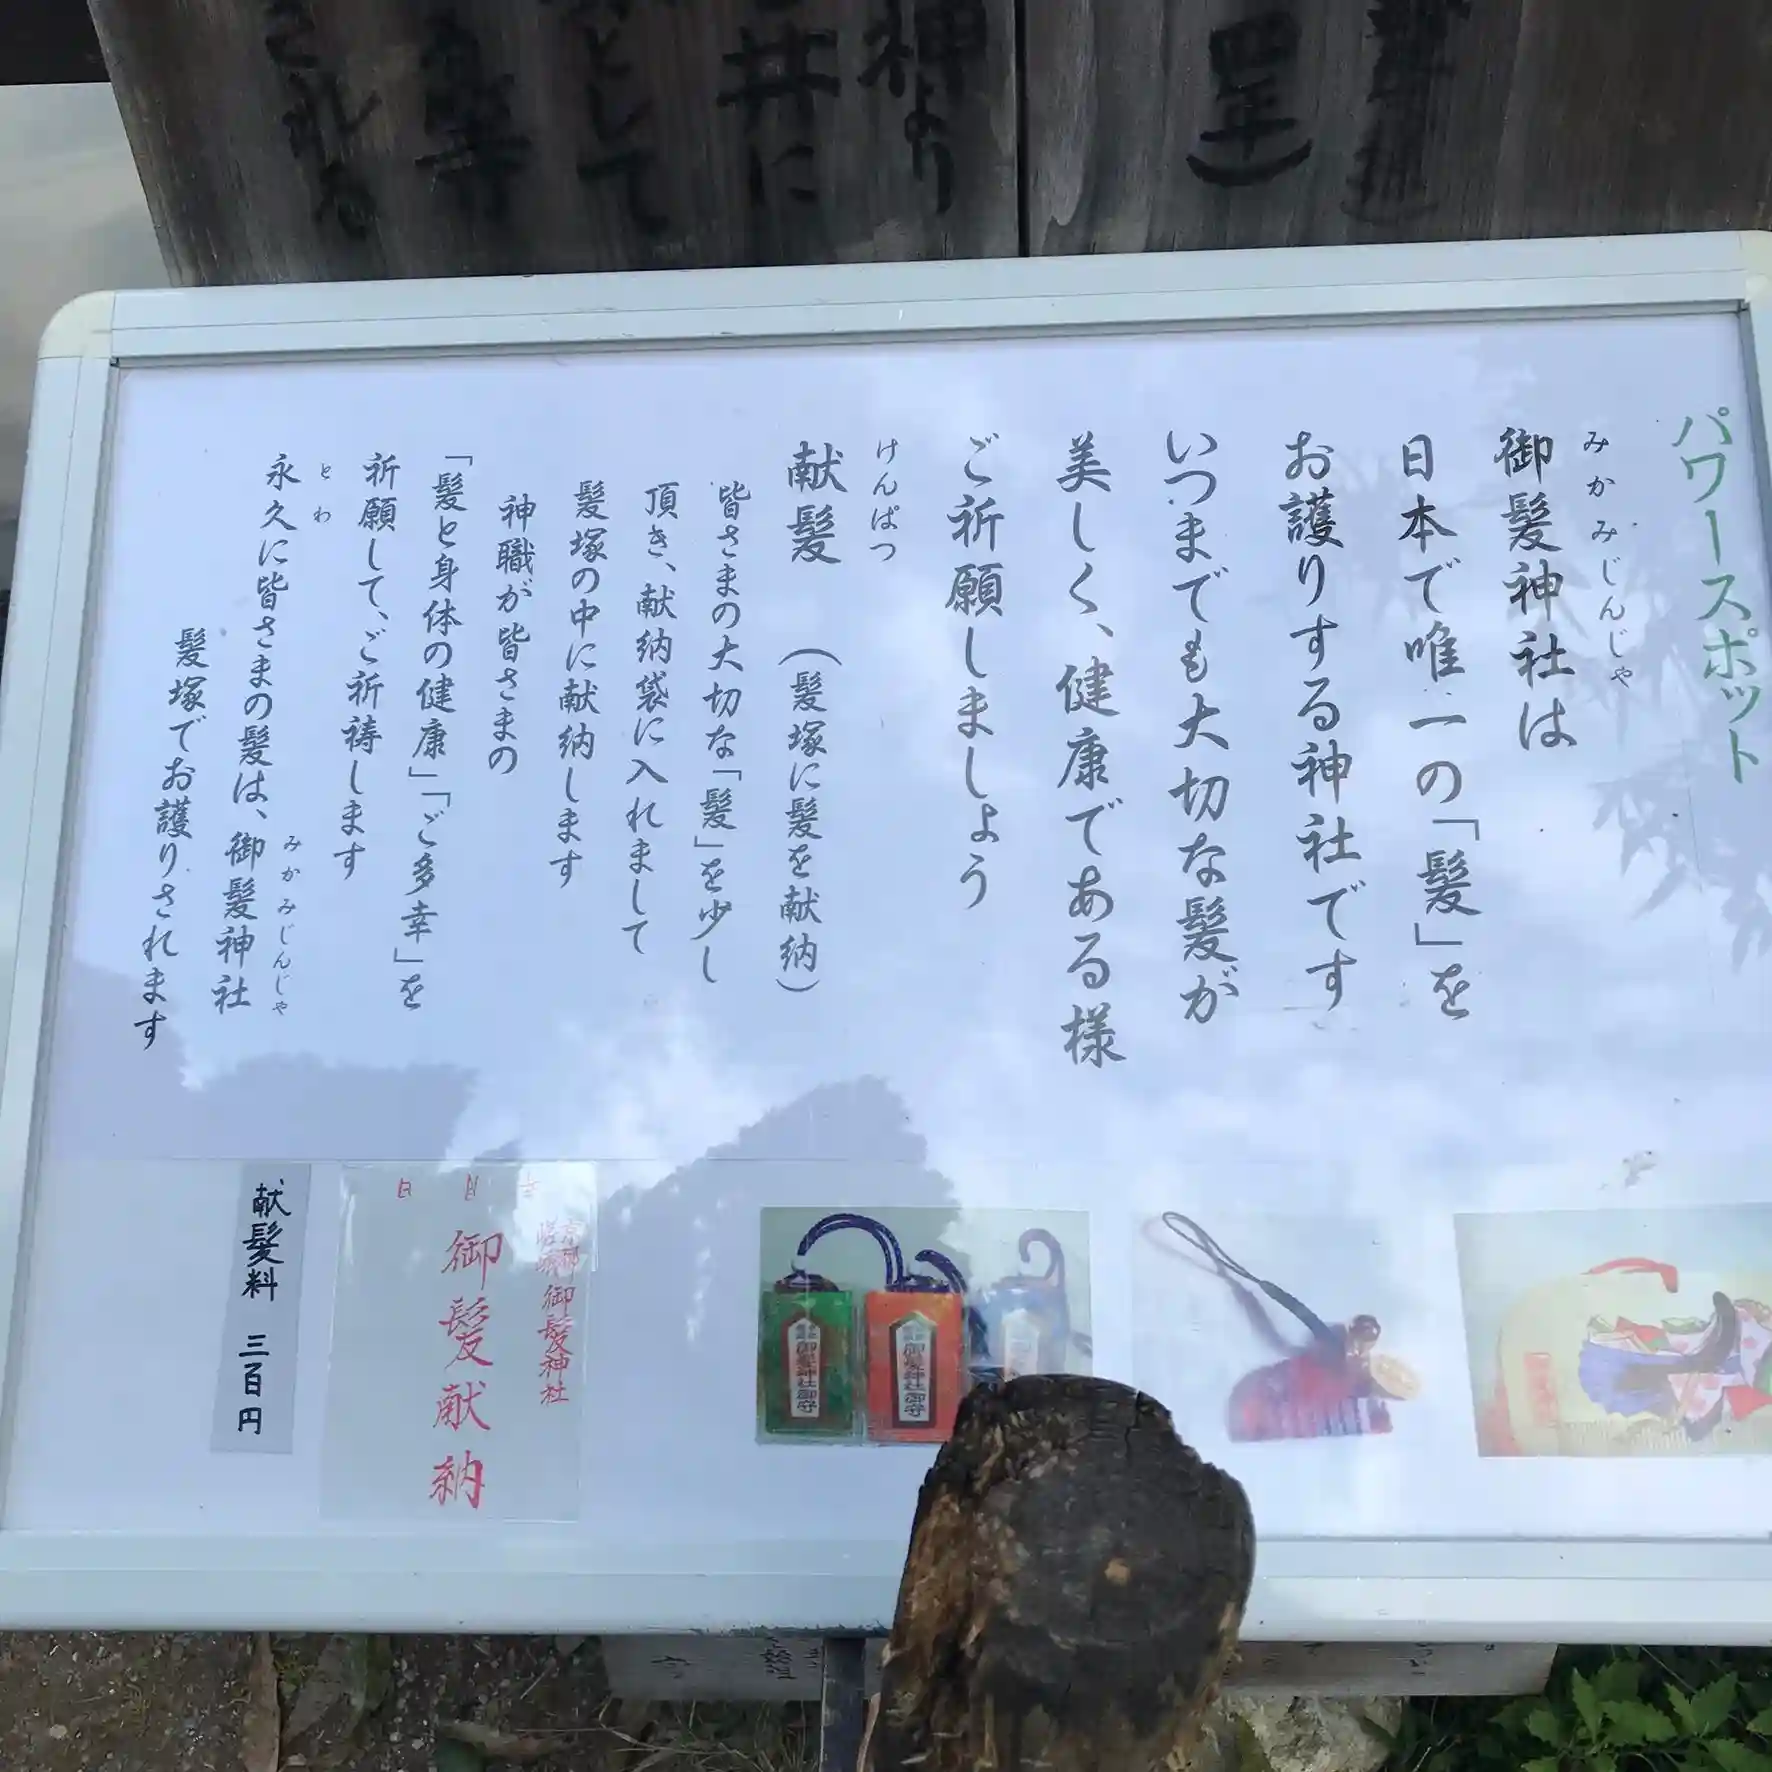 パワースポット
みかみじんじゃ
御髪神社は
日本で唯一の「髪」を
お護りする神社です
いつまでも大切な髪が
美しく、健康である様
ご祈願しましょう
けんぱつ
献髪 (髪塚に髪を献納)
皆さまの大切な「髪」を少し
頂き、献納袋に入れまして
髪塚の中に献納します
神職が皆さまの
「髪と身体の健康」「ご多幸」を
祈願して、ご祈祷します
とわ
みかみじんじゃ
永久に皆さまの髪は、御髪神社
髪塚でお護りされます
御髪神社御守
御髪神社御守
京都
嵯峨 御髪神社
御髪献納
日
献髪料 三百円
神より
井に
として